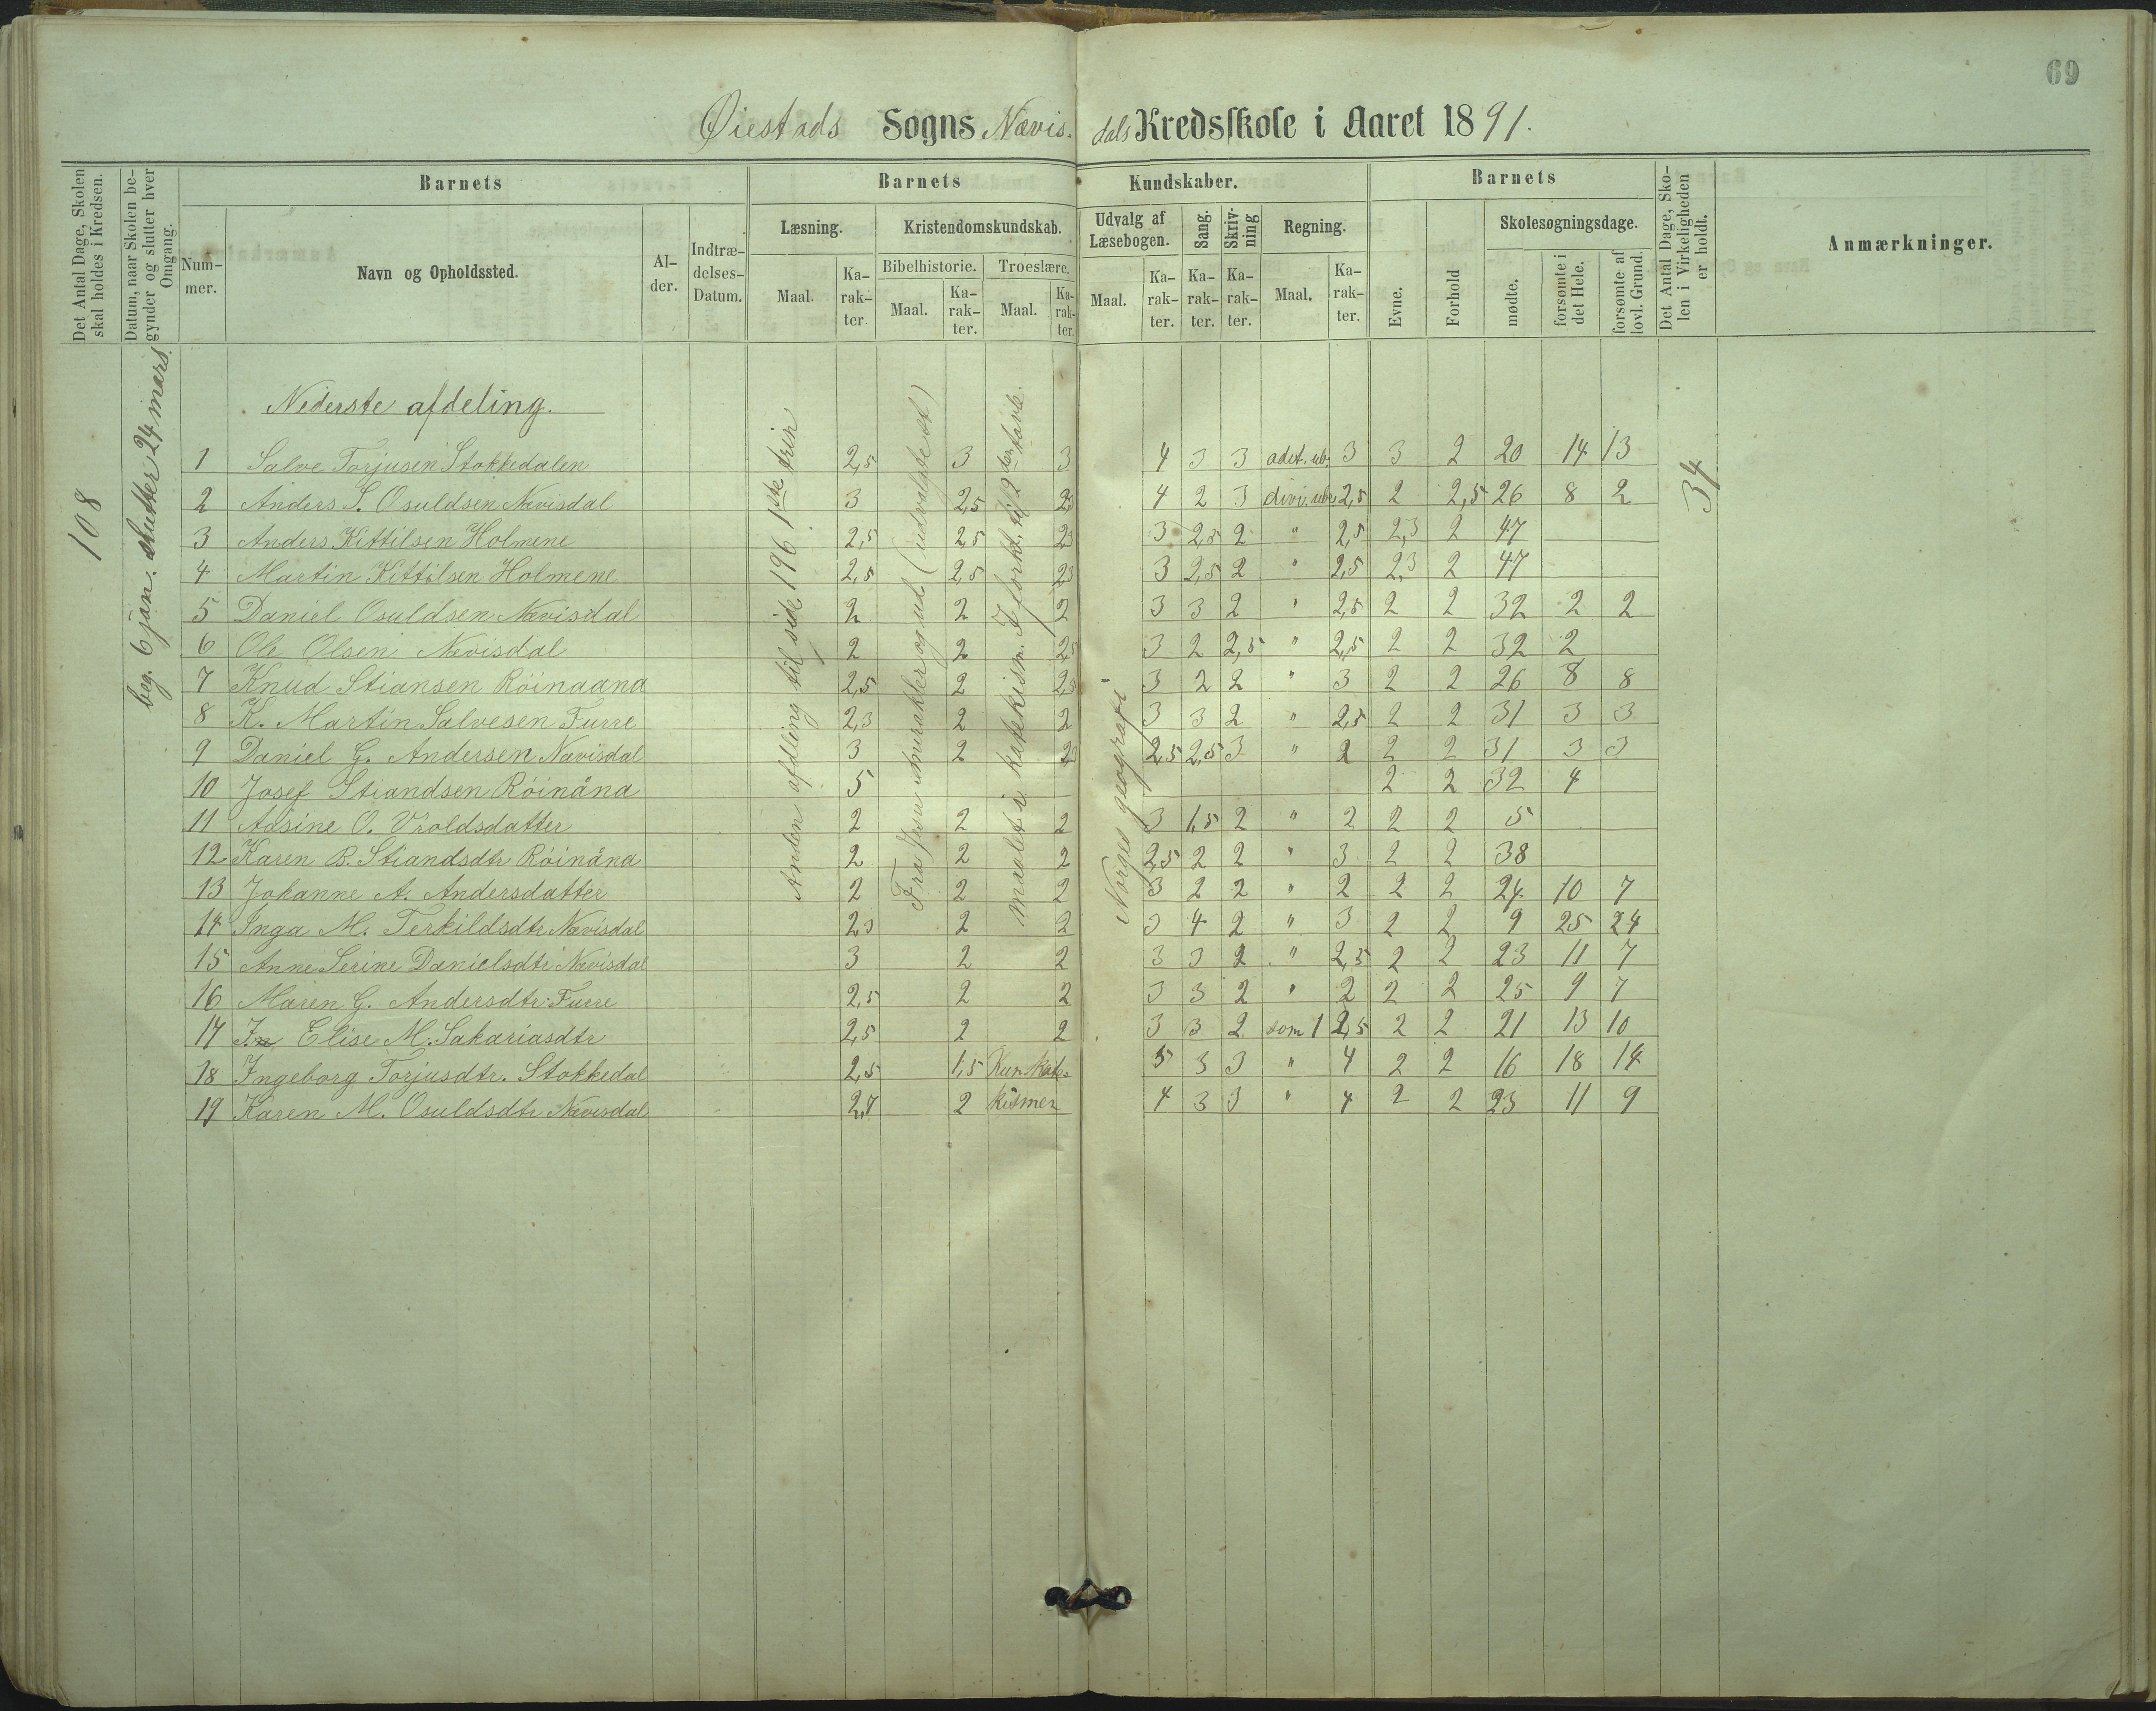 69
Øiestads Sogns Nævis. dals Kredsskole i Aaret 1891.
Det Antal Dage, Skolen skal holdes i Kredsen.
Datum, naar Skolen begynder og slutter hver Omgang.
Barnets
Barnets
Kundskaber.
Barnets
Det Antal Dage, Skolen i Virkeligheden er holdt.
Anmærkninger.
Nummer.
Navn og Opholdssted.
Alder.
Indtrædelses-Datum.
Læsning.
Kristendomskundskab.
Udvalg af Læsebogen.
Sang.
Skrivning
Regning.
Evne.
Forhold
Skolesøgningsdage.
Bibelhistorie.
Troeslære.
Maal.
Karakter.
Maal.
Karakter.
Maal.
Karakter.
Maal.
Karakter.
Karakter.
Karakter.
Maal.
Karakter.
mødte.
forsømte i det Hele.
forsømte af lovl. Grund.
108
beg. 6 jan. slutter 24 mars.
Anden afdeling til side 196. 1ste trin
Fra Jesu mirakler og ud (udvalgte st)
maalet i katekism. I forkl. til 2den tavle.
Norges geografi
34
Nederste afdeling.
1 Salve Torjusen Stokkedalen 2,5 3 3 4 3 3 adit. ub. 3 3 2 20 14 13
2 Anders S. Osuldsen Nævisdal 3 2,5 2,3 4 2 3 divi. ube 2,5 2 2,5 26 8 2
3 Anders Kittilsen Holmene 2,5 2,5 2,3 3 2,5 2 " 2,5 2,3 2 47
4 Martin Kittilsen Holmene 2,5 2,5 2,3 3 2,5 2 " 2,5 2,3 2 47
5 Daniel Osuldsen Nævisdal 2 2 2 3 3 2 " 2,5 2 2 32 2 2
6 Ole Olsen Nævisdal 2 2 2,5 3 2 2,5 " 2,5 2 2 32 2
7 Knud Stiansen Röinaana 2,5 2 2,5 3 2 2 " 3 2 2 26 8 8
8 K. Martin Salvesen Furre 2,3 2 2 3 3 2 " 2,5 2 2 31 3 3
9 Daniel G. Andersen Nævisdal 3 2 2 2,5 2,5 3 " 2 2 2 31 3 3
10 Josef Stiandsen Röinåna 5 2 2 32 4
11 Adsine O. Vroldsdatter 2 2 2 3 1,5 2 " 2 2 2 5
12 Karen B. Stiandsdtr Röinåna 2 2 2 2,5 2 2 " 3 2 2 38
13 Johanne A. Andersdatter 2 2 2 3 2 2 " 2 2 2 24 10 7
14 Inga M. Terkildsdtr Nævisdal 2,3 2 2 3 4 2 " 3 2 2 9 25 24
15 Anne Serine Danielsdtr Nævisdal 3 2 2 3 3 2 " 2,5 2 2 23 11 7
16 Maren G. Andersdtr Furre 2,5 2 2 3 3 2 " 2 2 2 25 9 7
17 Elise M. Sakariasdtr 2,5 2 2 3 3 2 som 1 2,5 2 2 21 13 10
18 Ingeborg Torjusdtr. Stokkedal 2,5 1,5 Kun kate- 5 3 3 " 4 2 2 16 18 14
19 Karen M. Osuldsdtr Nævisdal 2,7 2 kismen 4 3 3 " 4 2 2 23 11 9